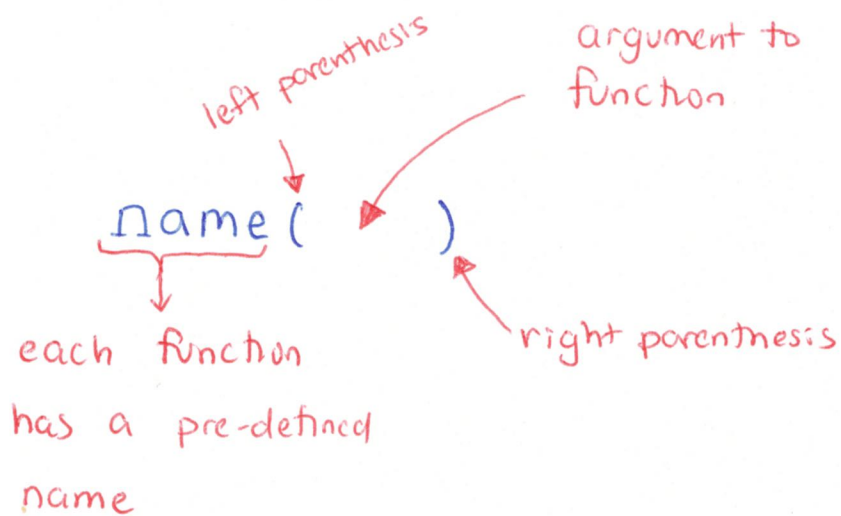 left parenthesis
argument to
function
name( )
right parenthesis
each function
has a pre-defined
name